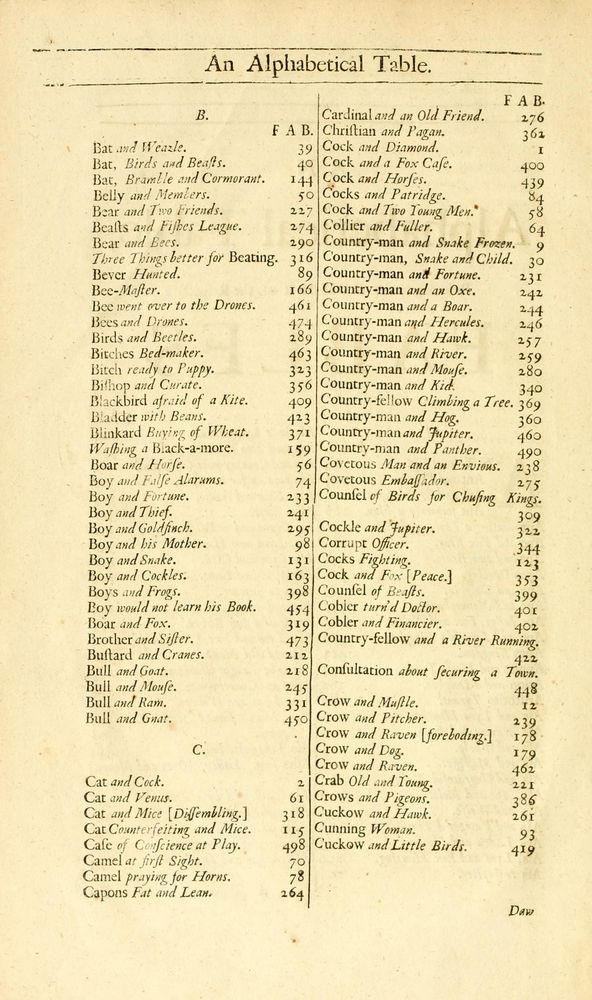 An Alphabetical Table.
B.
F A B.
Bat and Weazle. 39
Bat, Birds and Beaſts. 40
Bat, Bramble and Cormorant. 144
Belly and Members. 50
Bear and Two Friends. 227
Beaſts and Fiſhes League. 274
Bear and Bees. 290
Three Things better for Beating. 316
Bever Hunted. 89
Bee-Maſter. 166
Bee went over to the Drones. 461
Bees and Drones. 474
Birds and Beetles. 289
Bitches Bed-maker. 463
Bitch ready to Puppy. 323
Biſhop and Curate. 356
Blackbird afraid of a Kite. 409
Bladder with Beans. 423
Blinkard Buying of Wheat. 371
Waſhing a Black-a-more. 159
Boar and Horſe. 56
Boy and Falſe Alarums. 74
Boy and Fortune. 233
Boy and Thief. 241
Boy and Goldfinch. 295
Boy and his Mother. 98
Boy and Snake. 131
Boy and Cockles. 163
Boys and Frogs. 398
Boy would not learn his Book. 454
Boar and Fox. 319
Brother and Siſter. 473
Buſtard and Cranes. 212
Bull and Goat. 218
Bull and Mouſe. 245
Bull and Ram. 331
Bull and Gnat. 450
C.
Cat and Cock. 2
Cat and Venus. 61
Cat and Mice [Diſſembling.] 318
Cat Counterfeiting and Mice. 115
Caſe of Conſcience at Play. 498
Camel at firſt Sight. 70
Camel praying for Horns. 78
Capons Fat and Lean. 264
F A B.
Cardinal and an Old Friend. 276
Chriſtian and Pagan. 362
Cock and Diamond. 1
Cock and a Fox Caſe. 400
Cock and Horſes. 439
Cocks and Patridge. 84
Cock and Two Young Men. 58
Collier and Fuller. 64
Country-man and Snake Frozen. 9
Country-man, Snake and Child. 30
Country-man and Fortune. 231
Country-man and an Oxe. 242
Country-man and a Boar. 244
Country-man and Hercules. 246
Country-man and Hawk. 257
Country-man and River. 259
Country-man and Mouſe. 280
Country-man and Kid. 340
Country-fellow Climbing a Tree. 369
Country-man and Hog. 360
Country-man and Jupiter. 460
Country-man and Panther. 490
Covetous Man and an Envious. 238
Covetous Embaſſador. 275
Counſel of Birds for Chuſing Kings.
309
Cockle and Jupiter. 322
Corrupt Officer. 344
Cocks Fighting. 123
Cock and Fox [Peace.] 353
Counſel of Beaſts. 399
Cobler turn'd Doctor. 401
Cobler and Financier. 402
Country-fellow and a River Running.
422
Conſultation about ſecuring a Town.
448
Crow and Muſtle. 12
Crow and Pitcher. 239
Crow and Raven [foreboding.] 178
Crow and Dog. 179
Crow and Raven. 462
Crab Old and Young. 221
Crows and Pigeons. 386
Cuckow and Hawk. 261
Cunning Woman. 93
Cuckow and Little Birds. 419
Daw